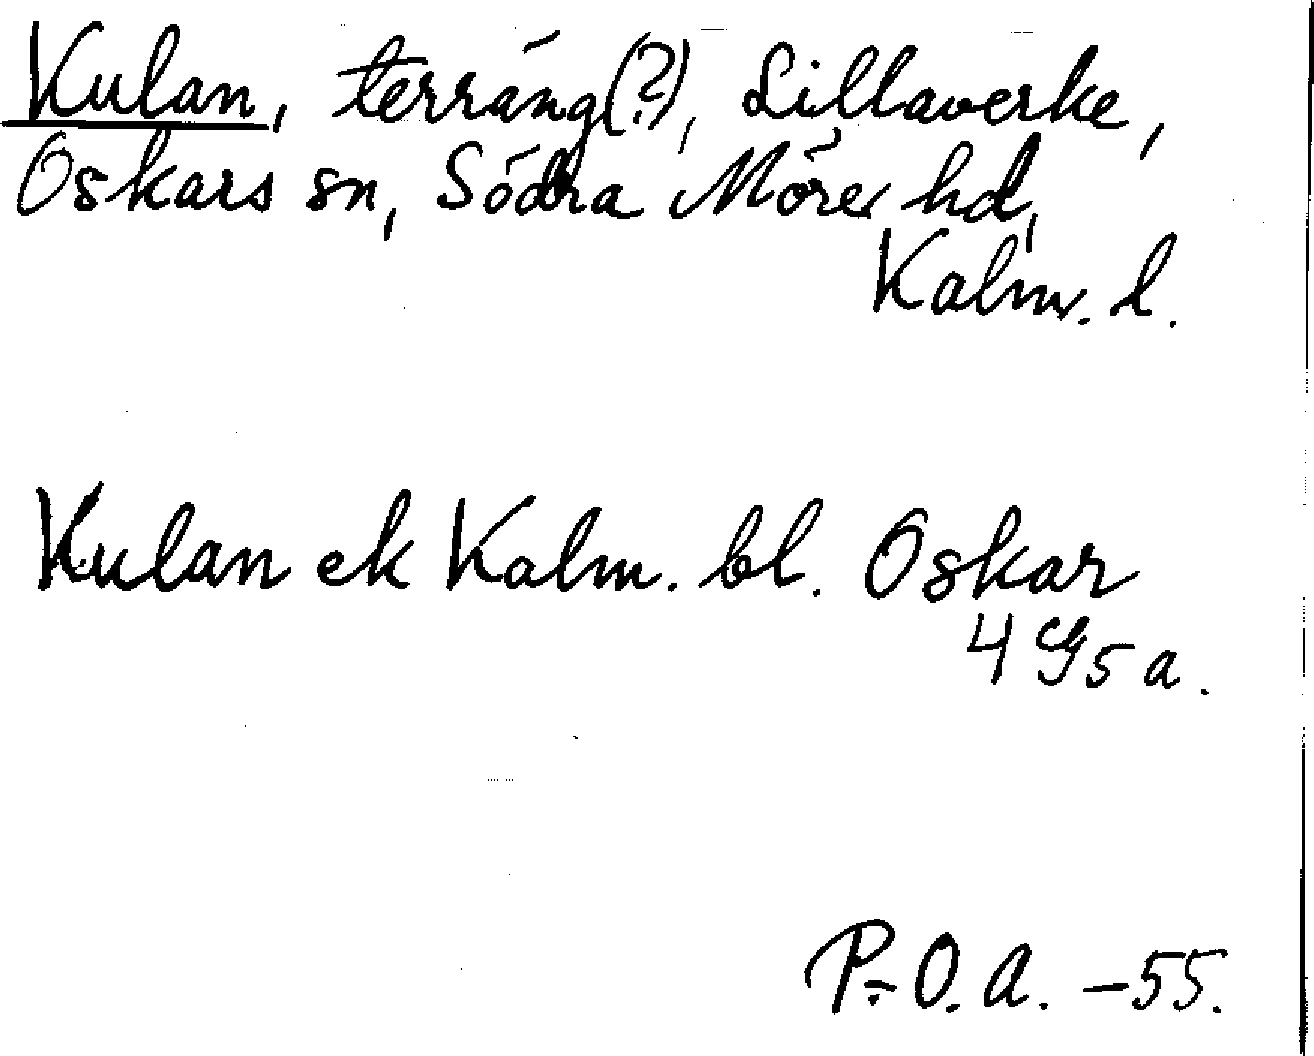 Kulan, terräng(?), Lillaverke,
Oskars sn, Södra Möre hd,
Kalm. l.
Kulan ek Kalm. bl. Oskar
4 G5 a.
P.-O. A. -55.